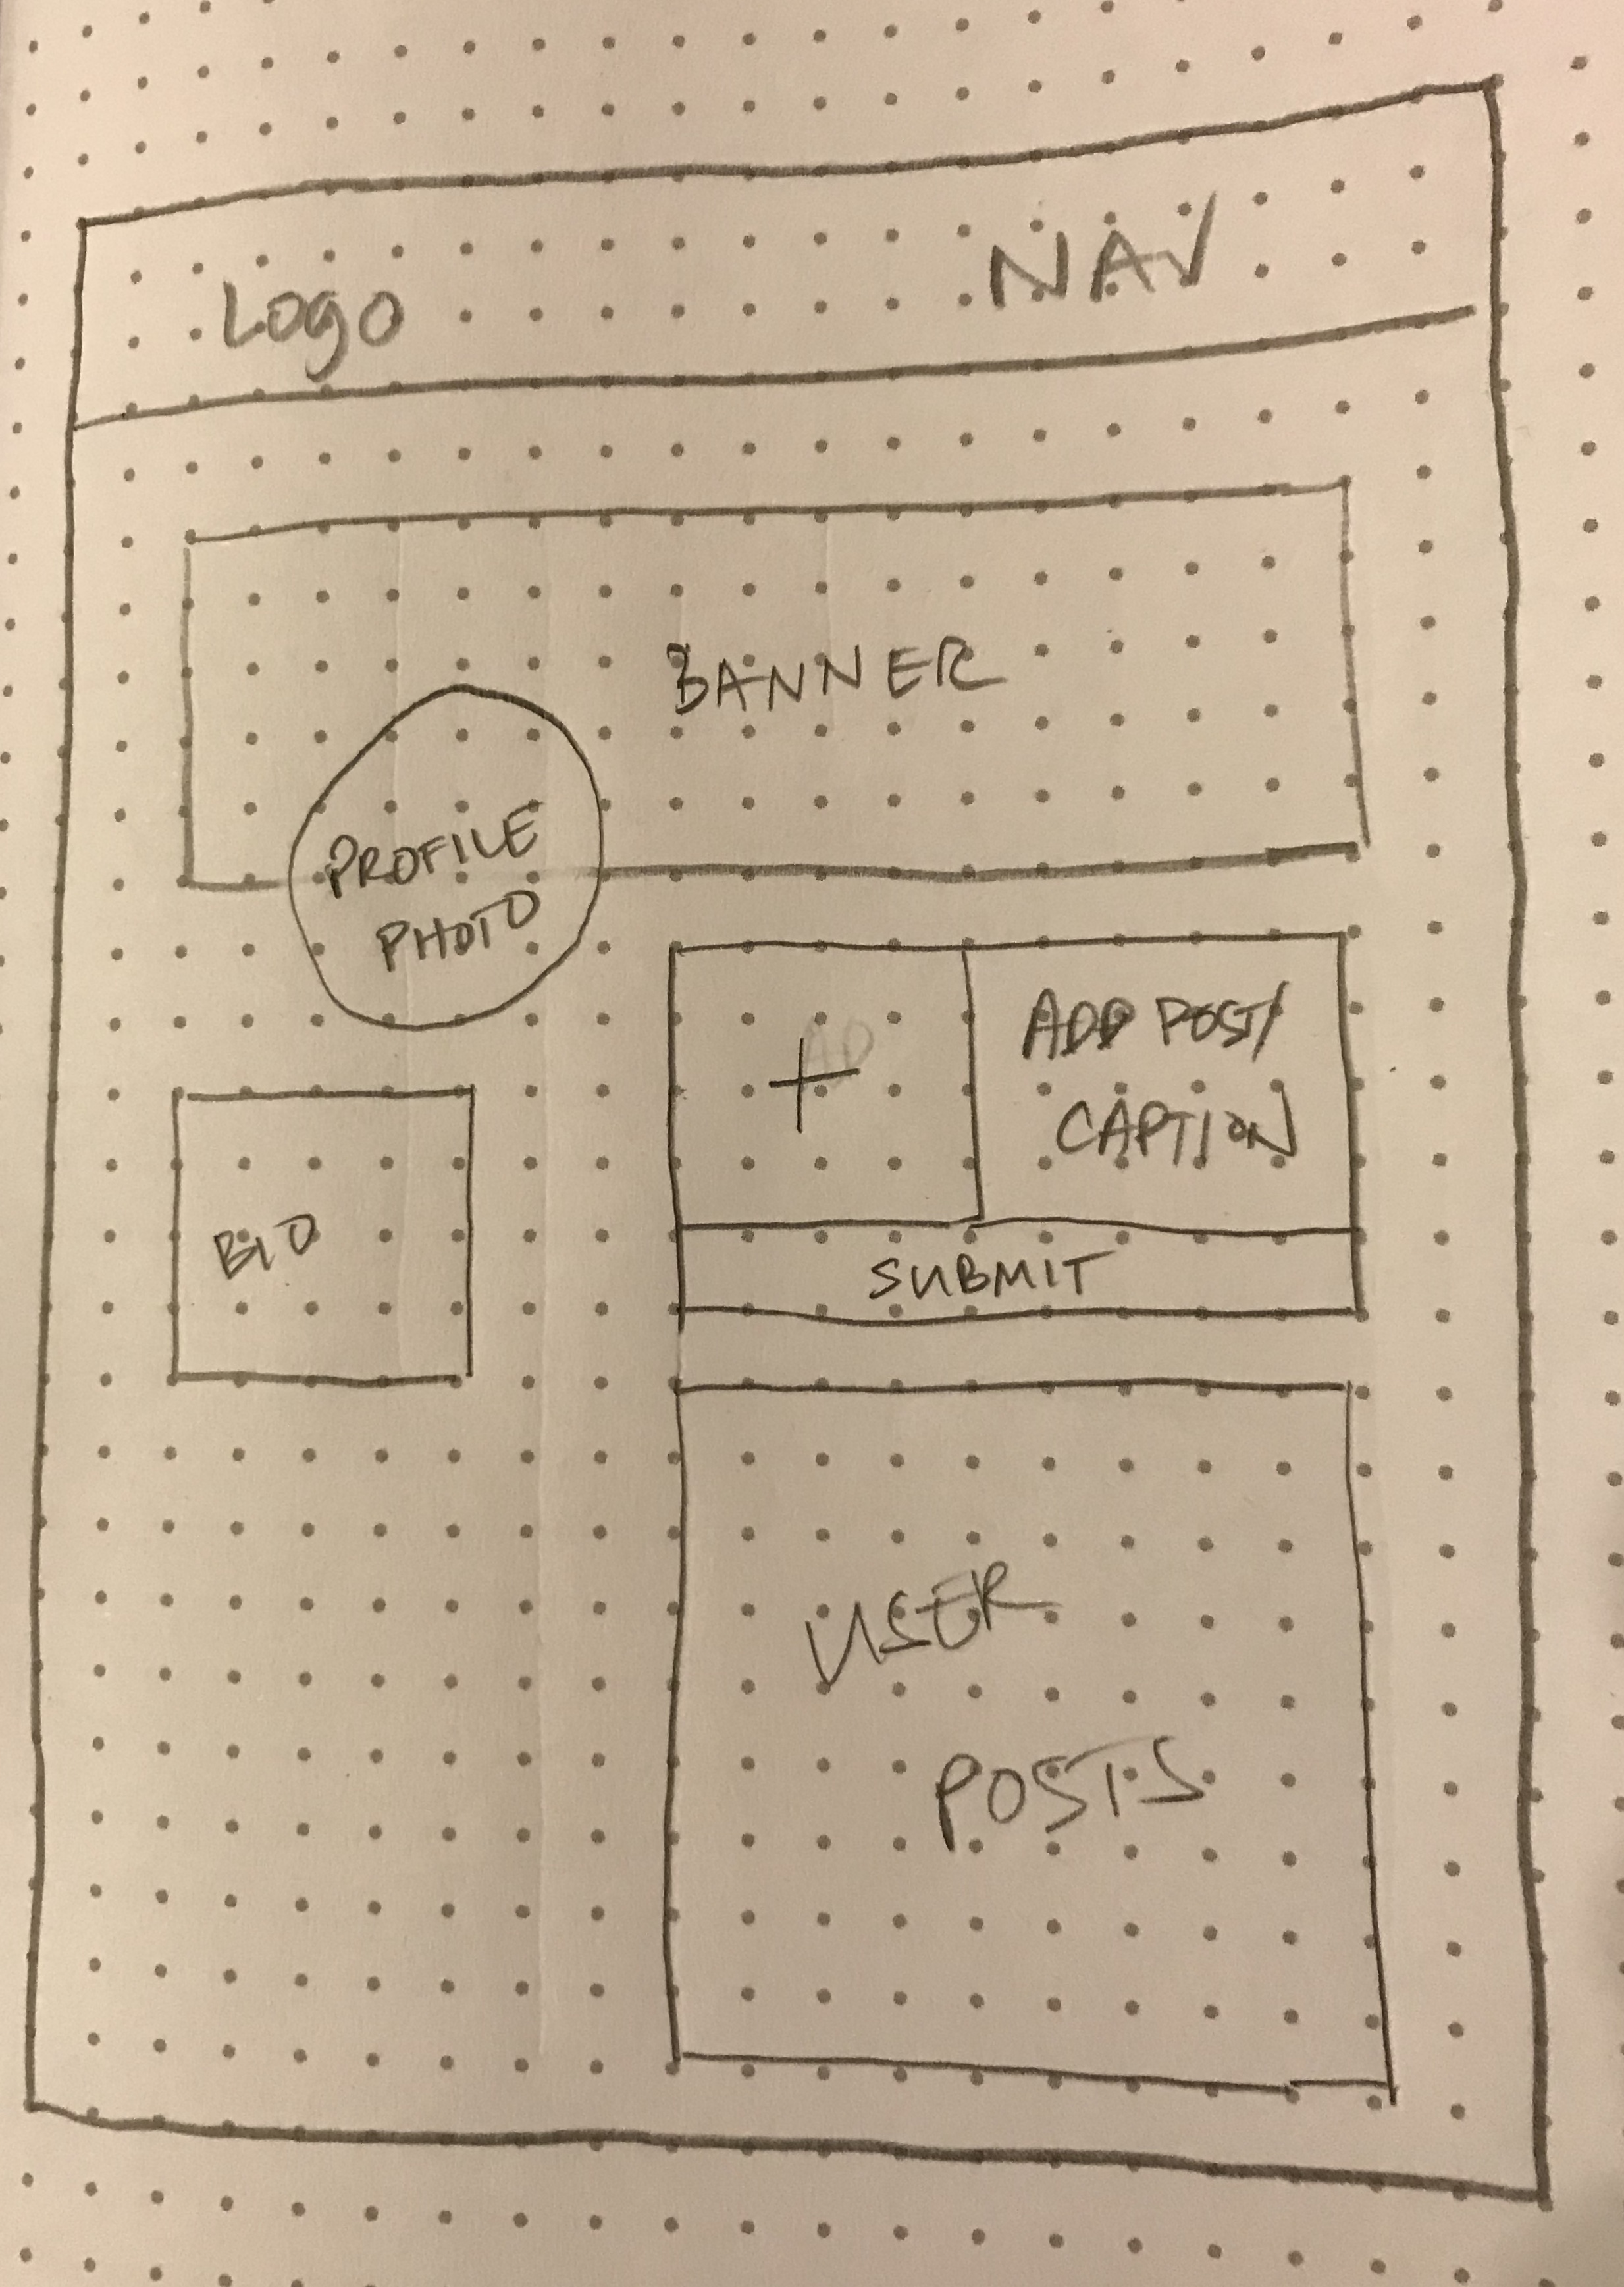 Logo
NAV
BANNER
PROFILE
PHOTO
+
ADD POST/
CAPTION
SUBMIT
BIO
USER
POSTS